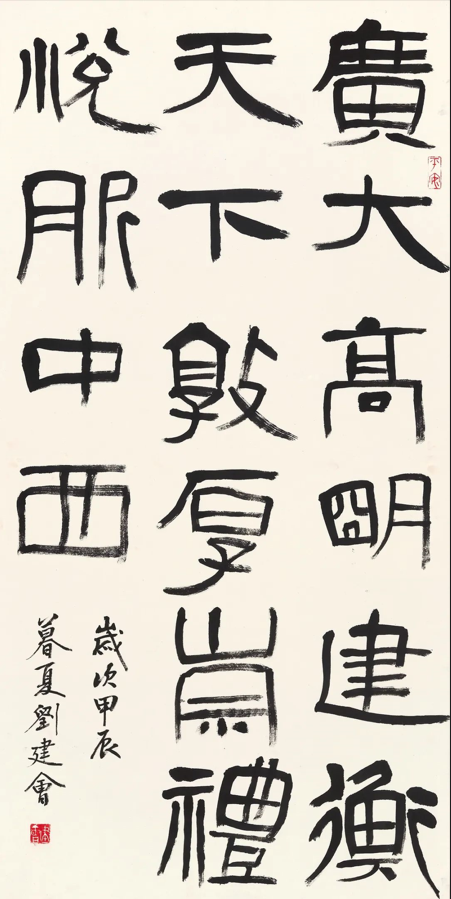 廣大高明建衡
天下敦厚崇禮
悅服中西
歲次甲辰
暮夏劉建會